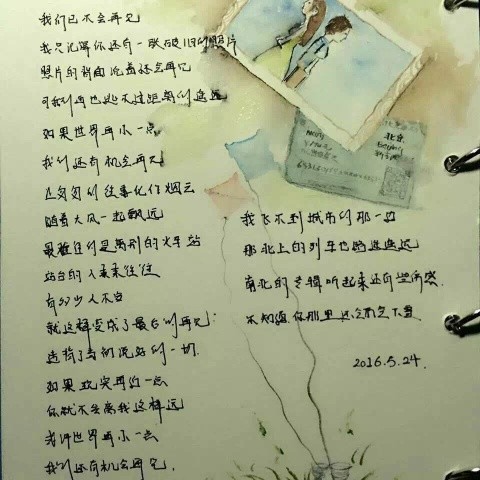 我们已不会再见
我只记得你还有一张破旧的照片
照片的背面写着还会再见
可我们再也逃不过距离的遥远
如果世界再小一点
我们还有机会再见
让匆匆的往事化作烟云
随着大风一起飘远
最难过的是离别的火车站
站台的人来来往往
有多少人不甘
就这样变成了最后的再见
违背了当初说好的一切
如果故宫再近一点
你就不会离我这样远
若许世界再小一点
我们还有机会再见.
我飞不到城市的那一边
那北上的列车也路途遥远
南北的专辑听起来还有些伤感
不知道你那里还会不会下雪
2016.5.24.
北京
Beijing